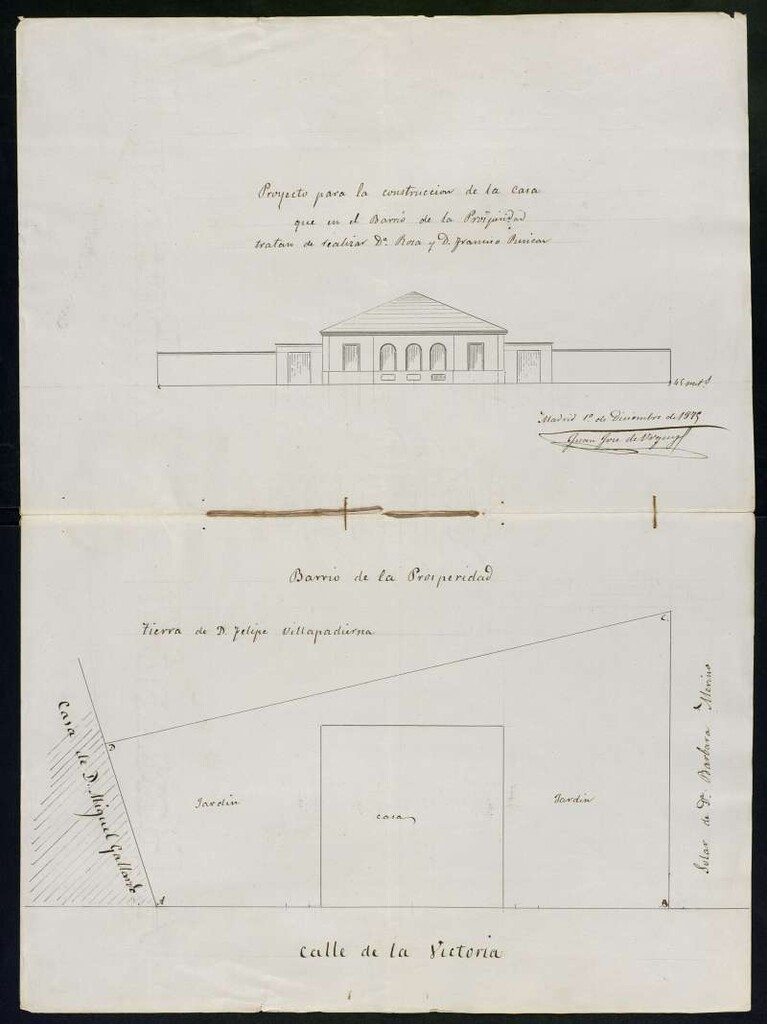 Proyecto para la construccion de la casa
que en el Barrio de la Prosperidad
tratan de realizar Dª. Rosa y D. Francisco
Madrid 1º. de Diciembre de 187
Juan José de
Barrio de la Prosperidad
Tierra de D. Felipe Villapadierna
C
Casa de D. Miguel Gallardo
Solar de Dª. Barbara Merino
Jardin
casa
Jardin
A
B
Calle de la Victoria